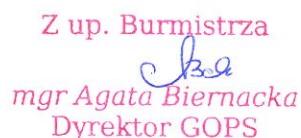 Z up. Burmistrza
mgr Agata Biernacka
Dyrektor GOPS